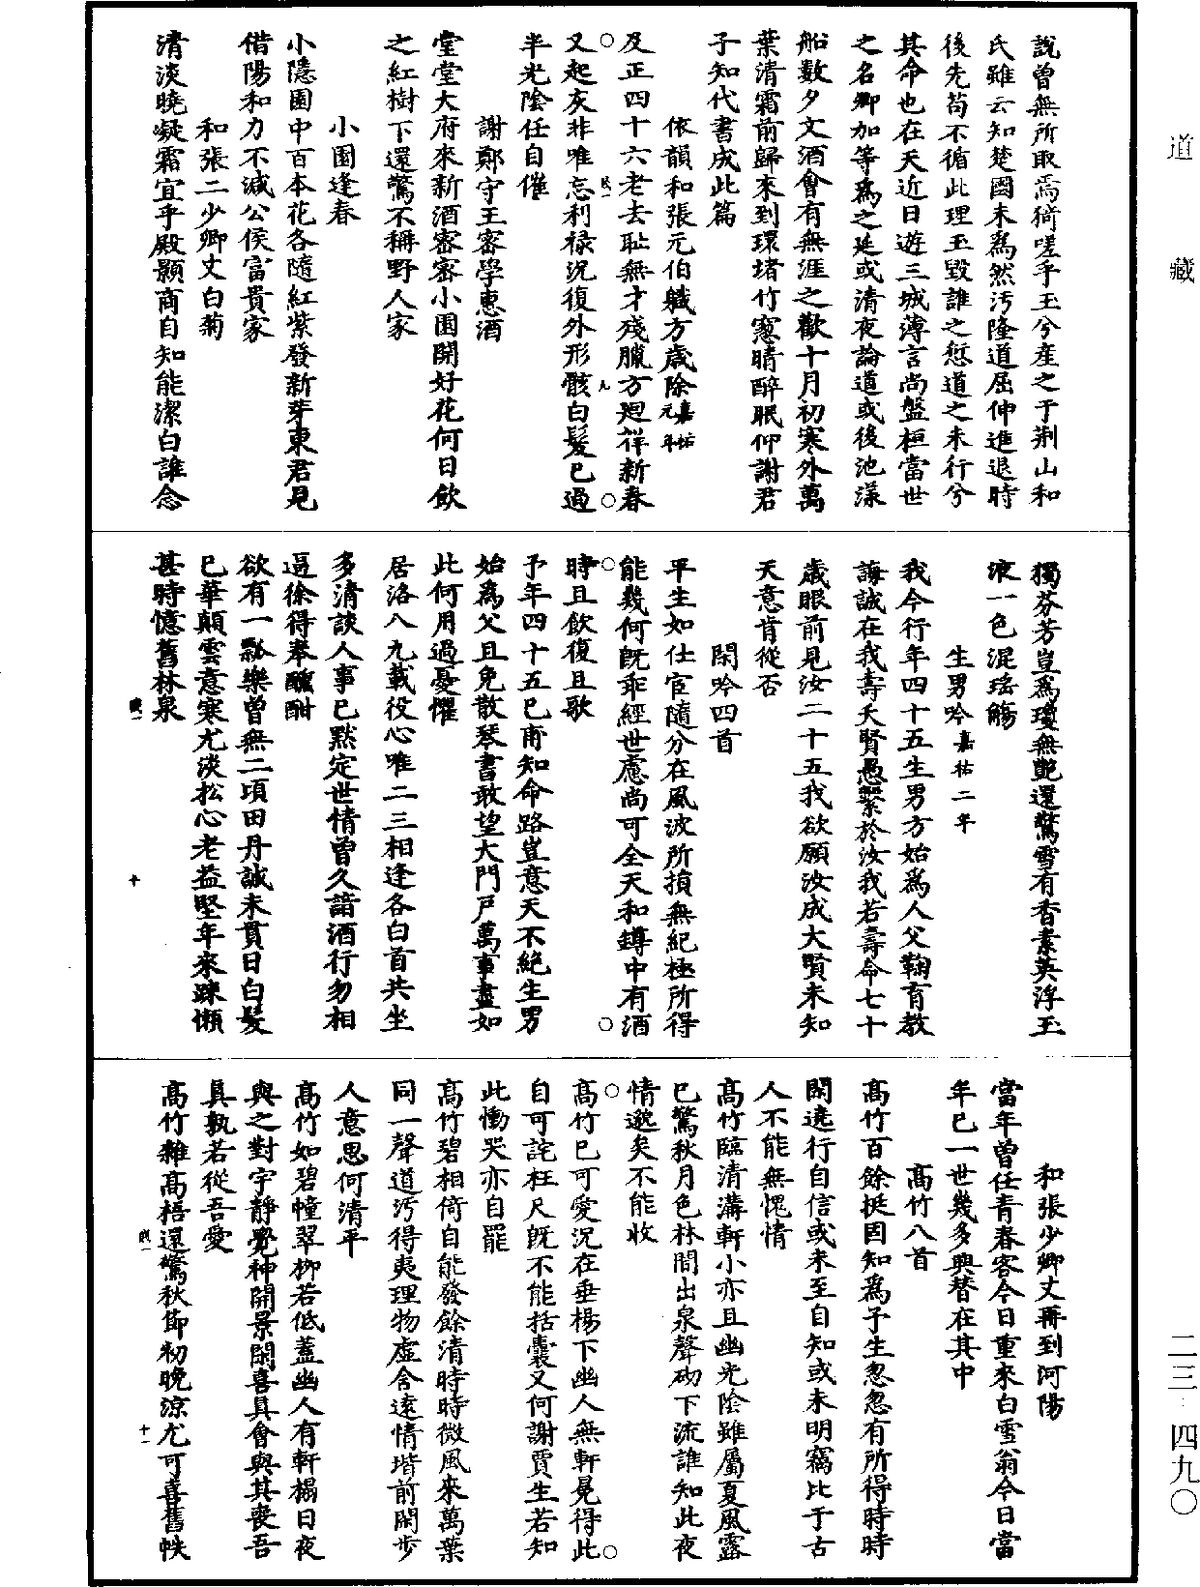 道藏
二三·四九〇
說曾無所取焉猗嗟乎玉兮產之于荆山和
氏雖云知楚國未爲然污隆道屈伸進退時
後先苟不循此理玉毀誰之愆道之未行兮
其命也在天近日遊三城薄言尚盤桓當世
之名卿加等爲之延或清夜論道或後池漾
船數夕文酒會有無涯之歡十月初寒外萬
葉清霜前歸來到環堵竹窻晴醉眠仰謝君
子知代書成此篇
依韻和張元伯職方歲除嘉祐元年
及正四十六老去耻無才殘臘方廻律新春
又起灰非唯忘利禄況復外形骸白髮已過
半光陰任自催
謝鄭守王密學惠酒
堂堂大府來新酒密密小園開好花何日飲
之紅樹下還驚不稱野人家
小園逢春
小隱園中百本花各隨紅紫發新芽東君見
借陽和力不減公侯富貴家
和張二少卿丈白菊
清淡曉凝霜宜乎殿顥商自知能潔白誰念
獨芬芳豈爲瓊無艷還驚雪有香素英浮玉
液一色混瑤觴
生男吟嘉祐二年
我今行年四十五生男方始爲人父鞠育教
誨誠在我壽夭賢愚繫於汝我若壽命七十
歲眼前見汝二十五我欲願汝成大賢未知
天意肯從否
閑吟四首
平生如仕宦隨分在風波所損無紀極所得
能幾何旣乖經世慮尚可全天和罇中有酒
時且飲復且歌
予年四十五已甫知命路豈意天不絶生男
始爲父且免散琴書敢望大門戶萬事盡如
此何用過憂懼
居洛八九載役心唯二三相逢各白首共坐
多清談人事已黙定世情曾久諳酒行勿相
逼徐得奉醺酣
欲有一瓢樂曾無二頃田丹誠未貫日白髮
已華顛雲意寒尤淡松心老益堅年來踈懶
甚時憶舊林泉
十
和張少卿丈再到河陽
當年曾任青春客今日重來白雪翁今日當
年已一世幾多興替在其中
高竹八首
高竹百餘挺固知爲予生忽忽有所得時時
閑遶行自信或未至自知或未明竊比于古
人不能無愧情
高竹臨清溝軒小亦且幽光陰雖屬夏風露
已驚秋月色林間出泉聲砌下流誰知此夜
情邈矣不能收
高竹已可愛況在垂楊下幽人無軒冕得此
自可詫枉尺旣不能括囊又何謝賈生若知
此慟哭亦自罷
高竹碧相倚自能發餘清時時微風來萬葉
同一聲道污得夷理物虛含遠情堦前閑步
人意思何清平
高竹如碧幢翠柳若低蓋幽人有軒榻日夜
與之對宇靜覺神開景閑喜真會與其喪吾
真孰若從吾愛
高竹雜高梧還驚秋節初晚涼尤可喜舊帙
十一